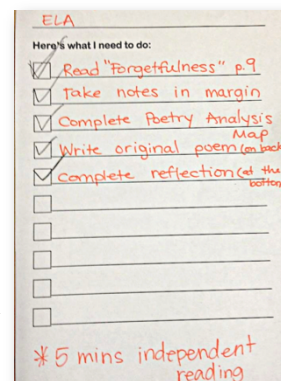 ELA
Here's what I need to do:
Read "Forgetfulness" p.9
Take notes in margin
Complete Poetry Analysis
Map
Write original poem (on back
Complete reflection (at the
bottom
* 5 mins independent
reading